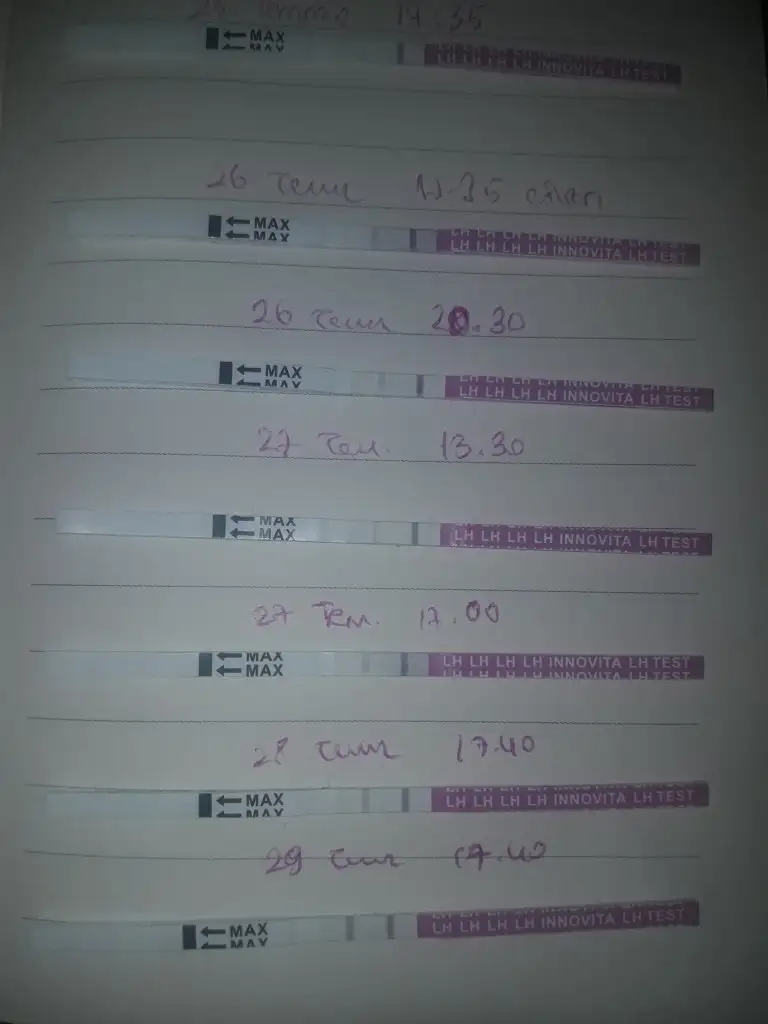 14:35
← MAX
← MAX
LH LH LH LH INNOVITA LH TEST
LH LH LH LH INNOVITA LH TEST
26 Tem
← MAX
← MAX
LH LH LH LH INNOVITA LH TEST
LH LH LH LH INNOVITA LH TEST
26 Tem 20.30
← MAX
← MAX
LH LH LH LH INNOVITA LH TEST
LH LH LH LH INNOVITA LH TEST
27 Tem. 13.30
← MAX
← MAX
LH LH LH LH INNOVITA LH TEST
LH LH LH LH INNOVITA LH TEST
27 Tem. 17.00
← MAX
← MAX
LH LH LH LH INNOVITA LH TEST
LH LH LH LH INNOVITA LH TEST
28 Tem 17.40
← MAX
← MAX
LH LH LH LH INNOVITA LH TEST
LH LH LH LH INNOVITA LH TEST
29 Tem 17.40
← MAX
← MAX
LH LH LH LH INNOVITA LH TEST
LH LH LH LH INNOVITA LH TEST